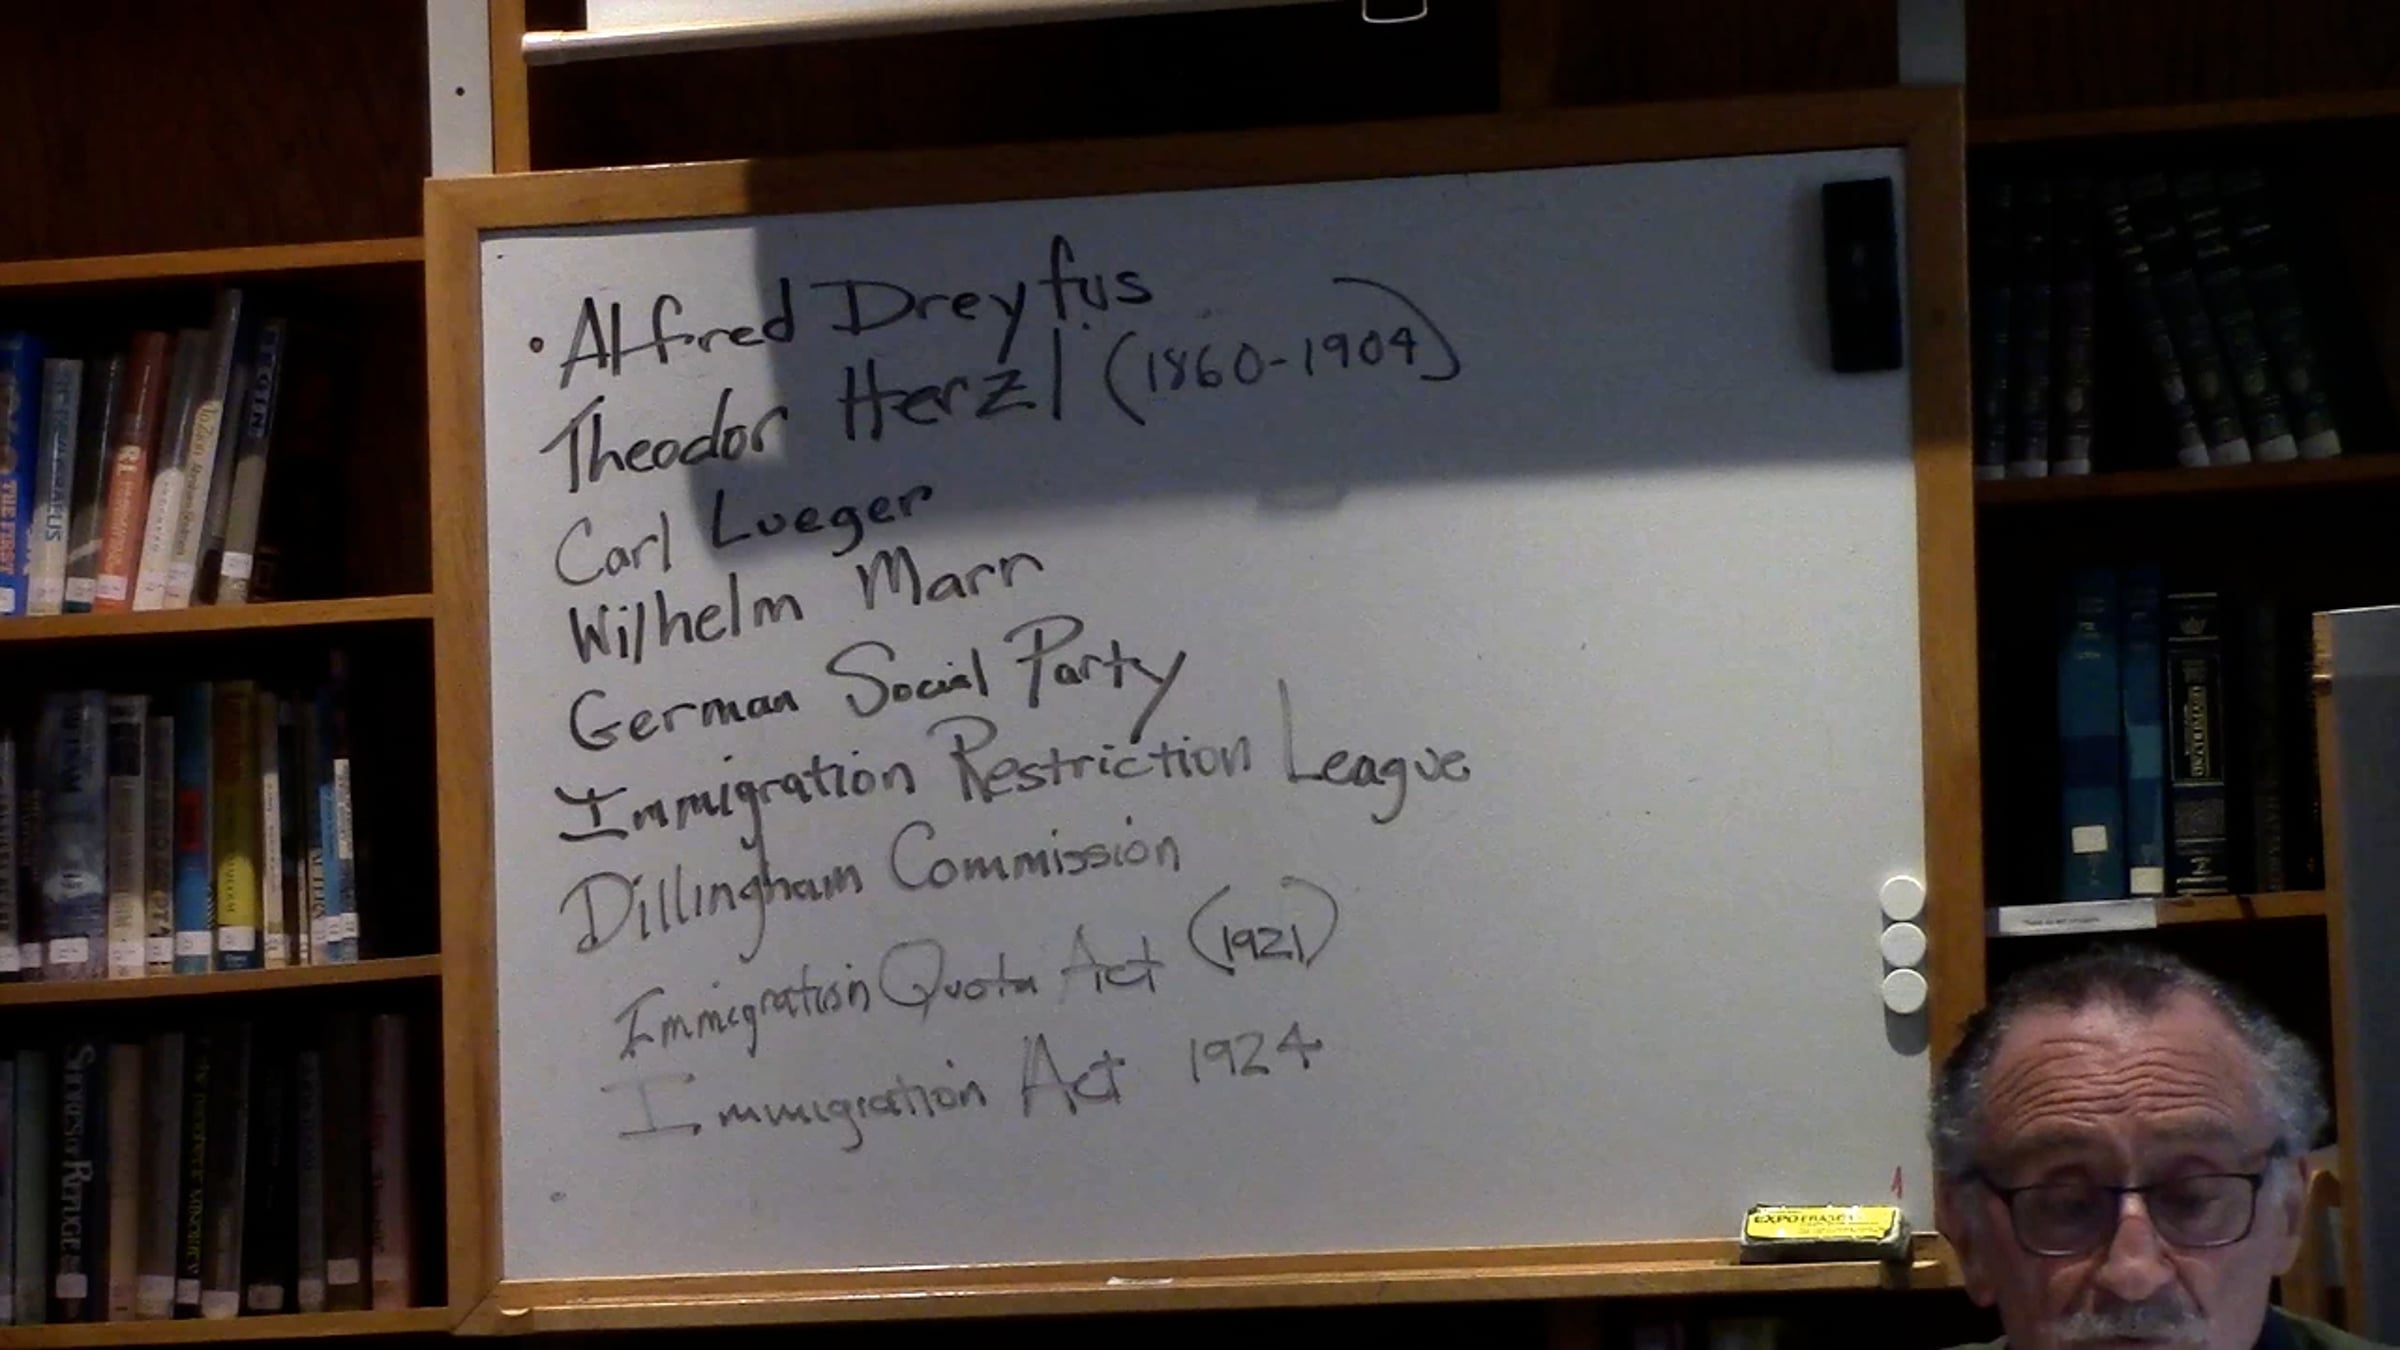 • Alfred Dreyfus
Theodor Herzl (1860-1904)
Carl Lueger
Wilhelm Marr
German Social Party
Immigration Restriction League
Dillingham Commission
Immigration Quota Act (1921)
Immigration Act 1924
EXPO ERASER
THE FIRST